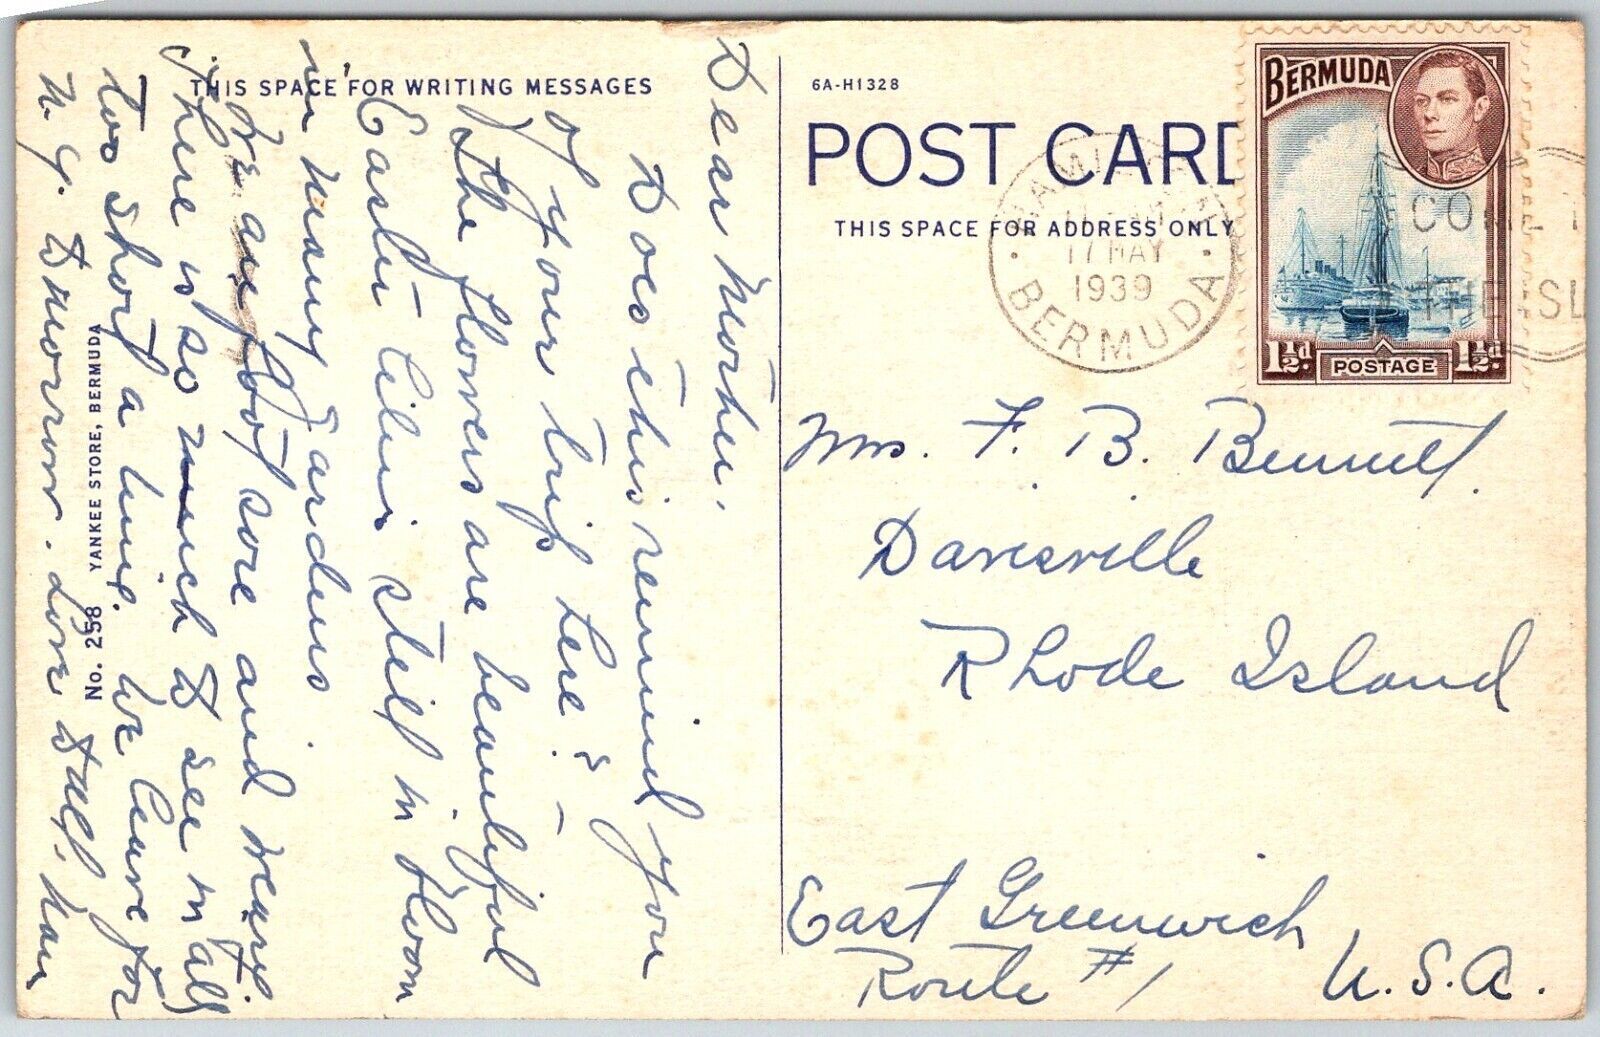 THIS SPACE FOR WRITING MESSAGES
Dear Mother,
Does this remind you
of your trip here? –
The flowers are beautiful
Easter lilies still in bloom
in many gardens
We are foot sore and weary
There is so much to see in all
too short a time. We leave for
N.Y. tomorrow. Love to all,
No. 258 YANKEE STORE, BERMUDA
6A-H1328
POST CARD
THIS SPACE FOR ADDRESS ONLY
HAMILTON
17 MAY
1939
BERMUDA
COME T
THE ISL
BERMUDA
1½d. POSTAGE 1½d.
Mrs. F. B. Bennett.
Davisville
Rhode Island
East Greenwich
Route #1
U.S.A.